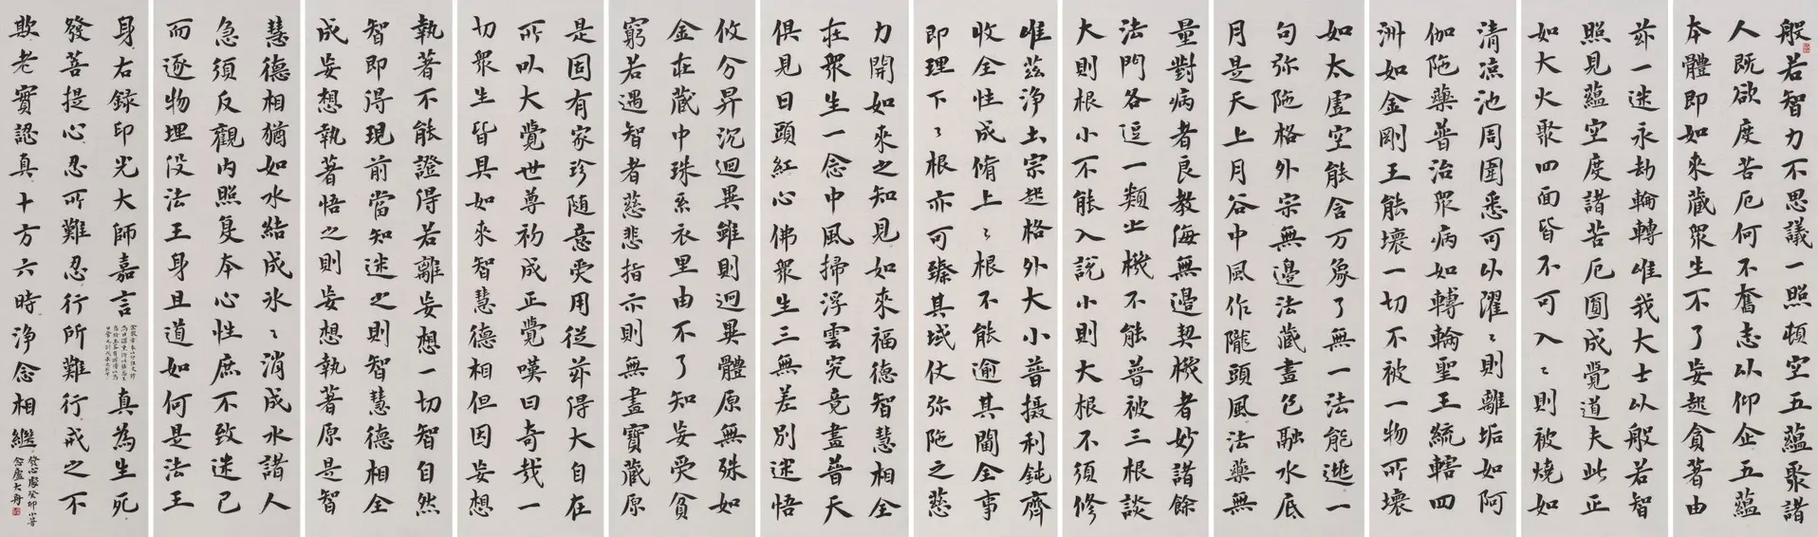 般若智力不思議一照頓空五蘊聚諸
人既欲度苦厄何不奮志以仰企五蘊
本體即如來藏眾生不了妄起貪著由
茲一迷永劫輪轉唯我大士以般若智
照見蘊空度諸苦厄圓成覺道夫此正
如大火聚四面皆不可入〻則被燒如
清涼池周圍悉可以濯〻則離垢如阿
伽陀藥普治眾病如轉輪聖王統轄四
洲如金剛王能壞一切不被一物所壞
如太虛空能含万象了無一法能逃一
句弥陀格外宗無邊法藏盡包融水底
月是天上月谷中風作隴頭風法藥無
量對病者良教海無邊契機者妙諸餘
法門各逗一類之機不能普被三根談
大則根小不能入說小則大根不須修
唯茲淨土宗趣格外大小普攝利鈍齊
收全性成脩上〻根不能逾其閫全事
即理下〻根亦可臻其域仗弥陀之慈
力開如來之知見如來福德智慧相全
在眾生一念中風掃浮雲究竟盡普天
俱見日頭紅心佛眾生三無差別迷悟
攸分昇沉迥異雖則迥異體原無殊如
金在藏中珠系衣里由不了知妄受貧
窮若遇智者慈悲指示則無盡寶藏原
是固有家珍隨意受用從茲得大自在
所以大覺世尊初成正覺嘆曰奇哉一
切眾生皆具如來智慧德相但因妄想
執著不能證得若離妄想一切智自然
智即得現前當知迷之則智慧德相全
成妄想執著悟之則妄想執著原是智
慧德相猶如水結成氷〻消成水諸人
急須反觀內照复本心性庶不致迷己
而逐物埋没法王身且道如何是法王
身右錄印光大師嘉言
真為生死
發菩提心忍所難忍行所難行戒之不
欺老實認真十方六時淨念相繼
癸卯小寒
念廬大舟